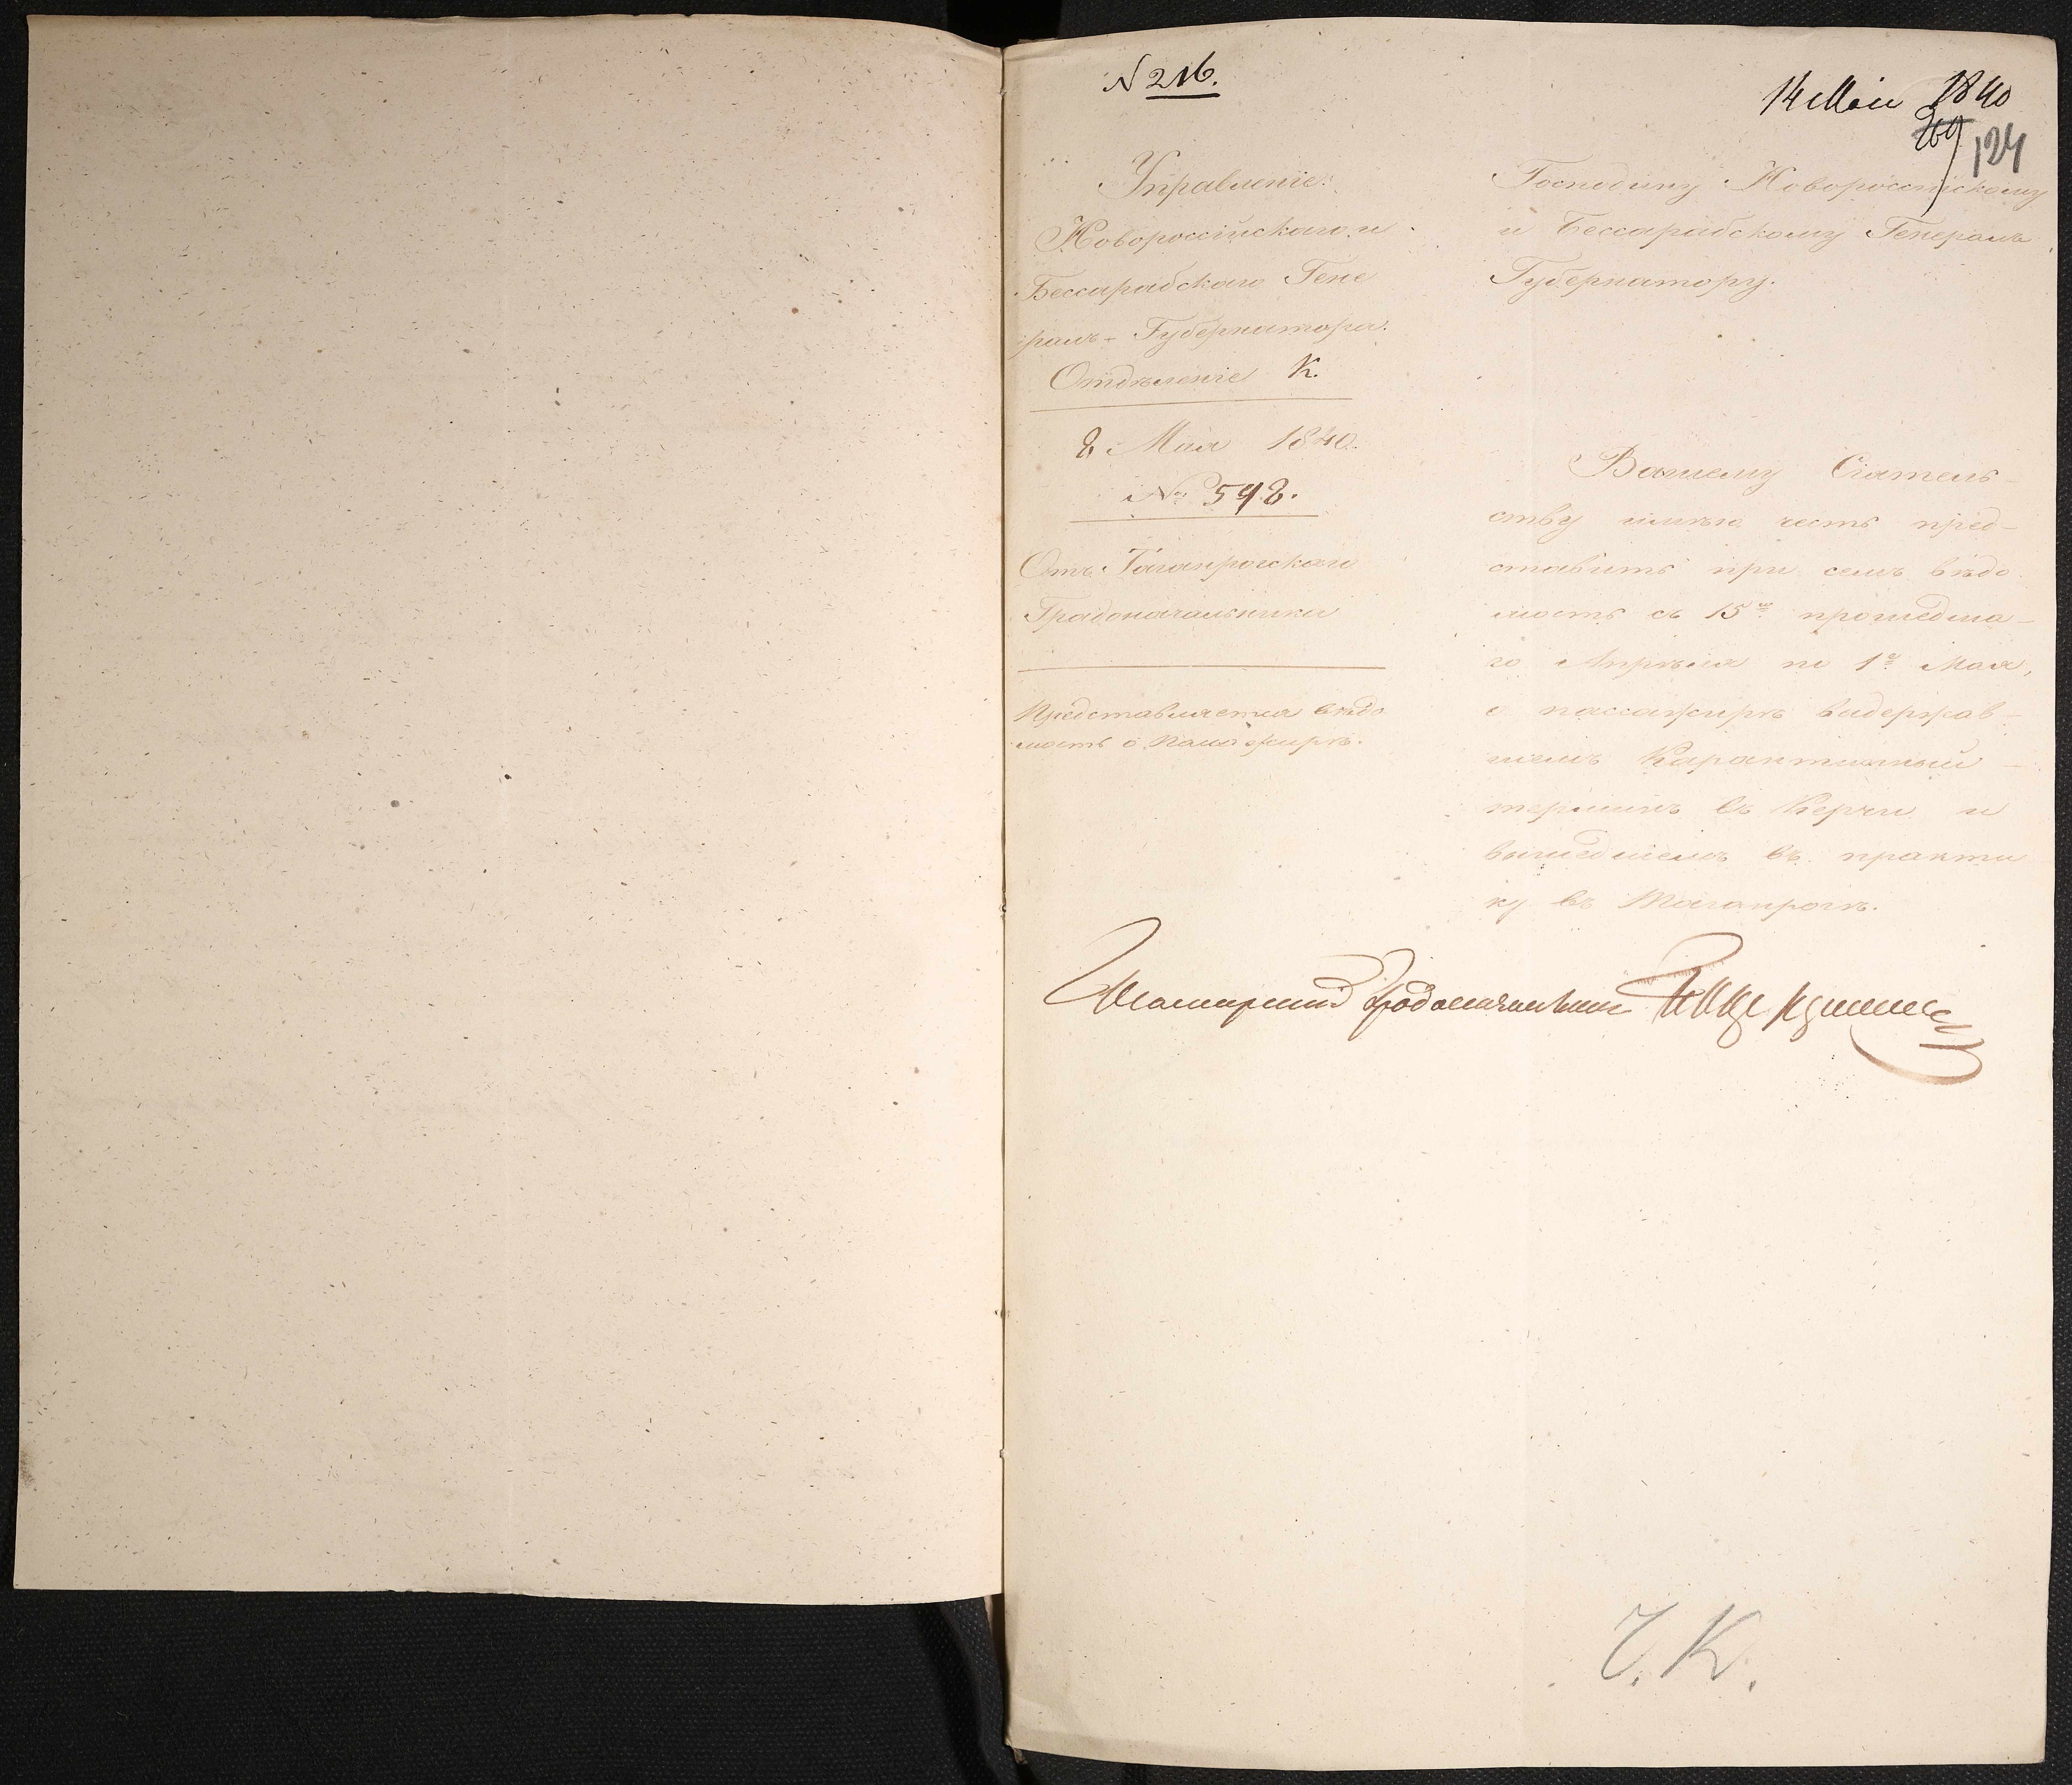 N 216.
14 Мая 1840
269
124
Управленіе
Новороссійскаго и
Бессарабскаго Гене
ралъ-Губернатора.
Отдѣленіе К.
8 Мая 1840.
№ 598.
Отъ Таганрогскаго
Градоначальника
Представляется вѣдо
мость о пассажирѣ.
Господину Новороссійскому
и Бессарабскому Генералъ
Губернатору.
Вашему Сіятель-
ству имѣю честь пред-
ставить при семъ вѣдо
мость съ 15го прошедша-
го Апрѣля по 1е Мая,
о пассажирѣ выдержав-
шемъ Карантинный
терминъ въ Керчи и
вышедшемъ въ практи
ку въ Таганрогѣ.
Градоначальникъ
Ч. К.